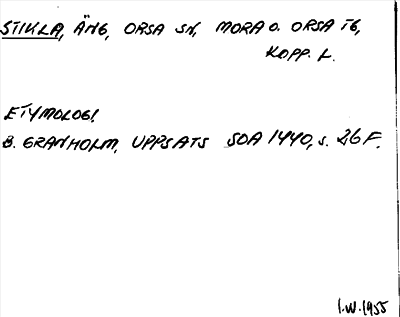 STIKLA, ÄNG, ORSA SN, MORA O. ORSA TG,
KOPP. L.
ETYMOLOGI
B. GRANHOLM, UPPSATS SOA 1440, s. 26 F.
I.W. 1955